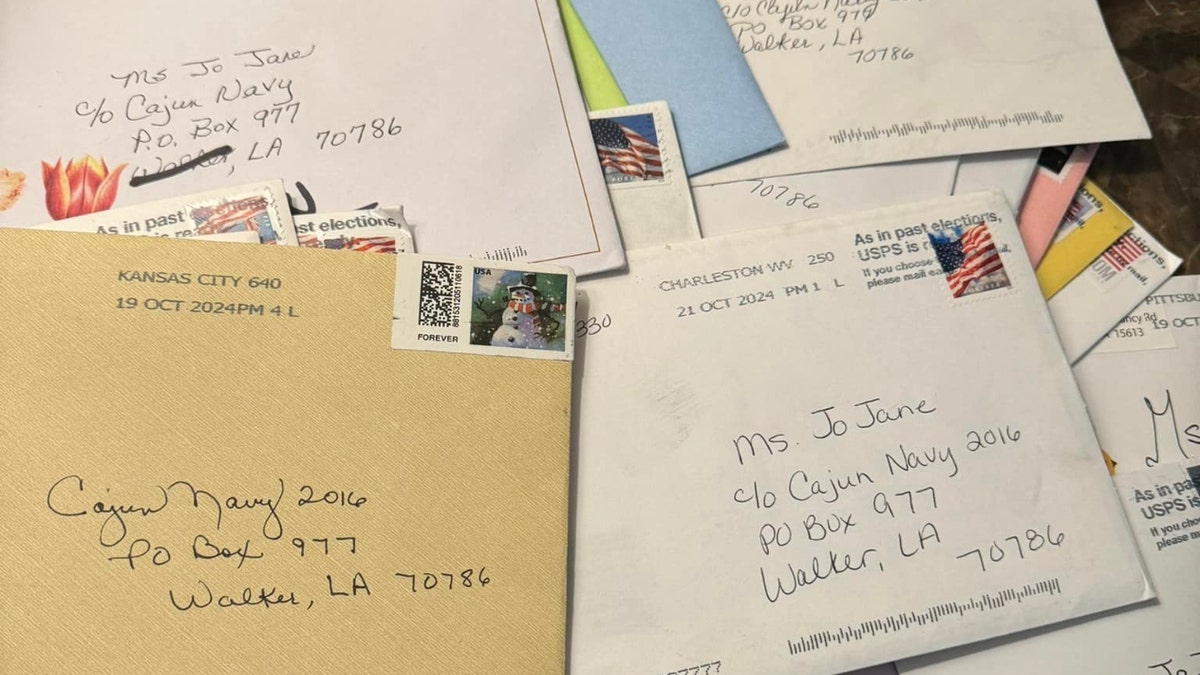 Ms Jo Jane
c/o Cajun Navy
P.O. Box 977
Walker, LA 70786
c/o Cajun Navy
PO Box 979
Walker, LA
70786
70786
As in past elections,
st elections,
KANSAS CITY 640
19 OCT 2024PM 4 L
USA
FOREVER
Cajun Navy 2016
PO Box 977
Walker, LA 70786
330
CHARLESTON WV 250
21 OCT 2024 PM 1 L
As in past elections,
USPS is
If you choose
please mail
Ms. Jo Jane
c/o Cajun Navy 2016
PO Box 977
Walker, LA
70786
7777
ons,
ctions,
mail,
PITTSBU
ncy Rd
15613
19 OCT
Ms
As in pa
USPS is
If you cho
please m
Jo